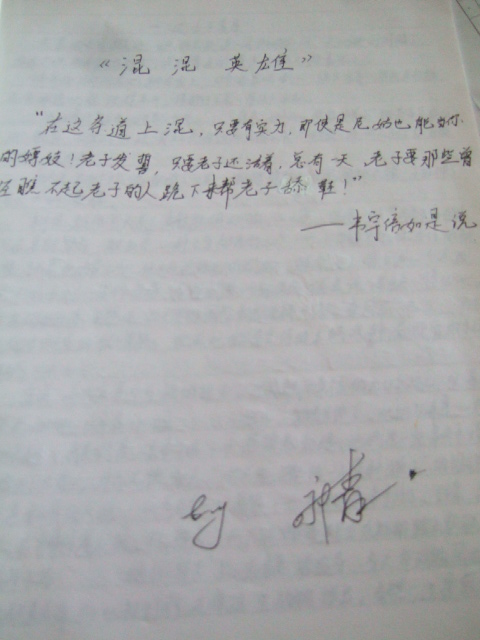 《混混英雄》
“在这条道上混，只要有实力，即使是尼姑也能为你
的！老子发誓，只要老子还活着，总有一天，老子要那些曾
经瞧不起老子的人跪下来帮老子舔鞋！”
——韦宇倍如是说
by